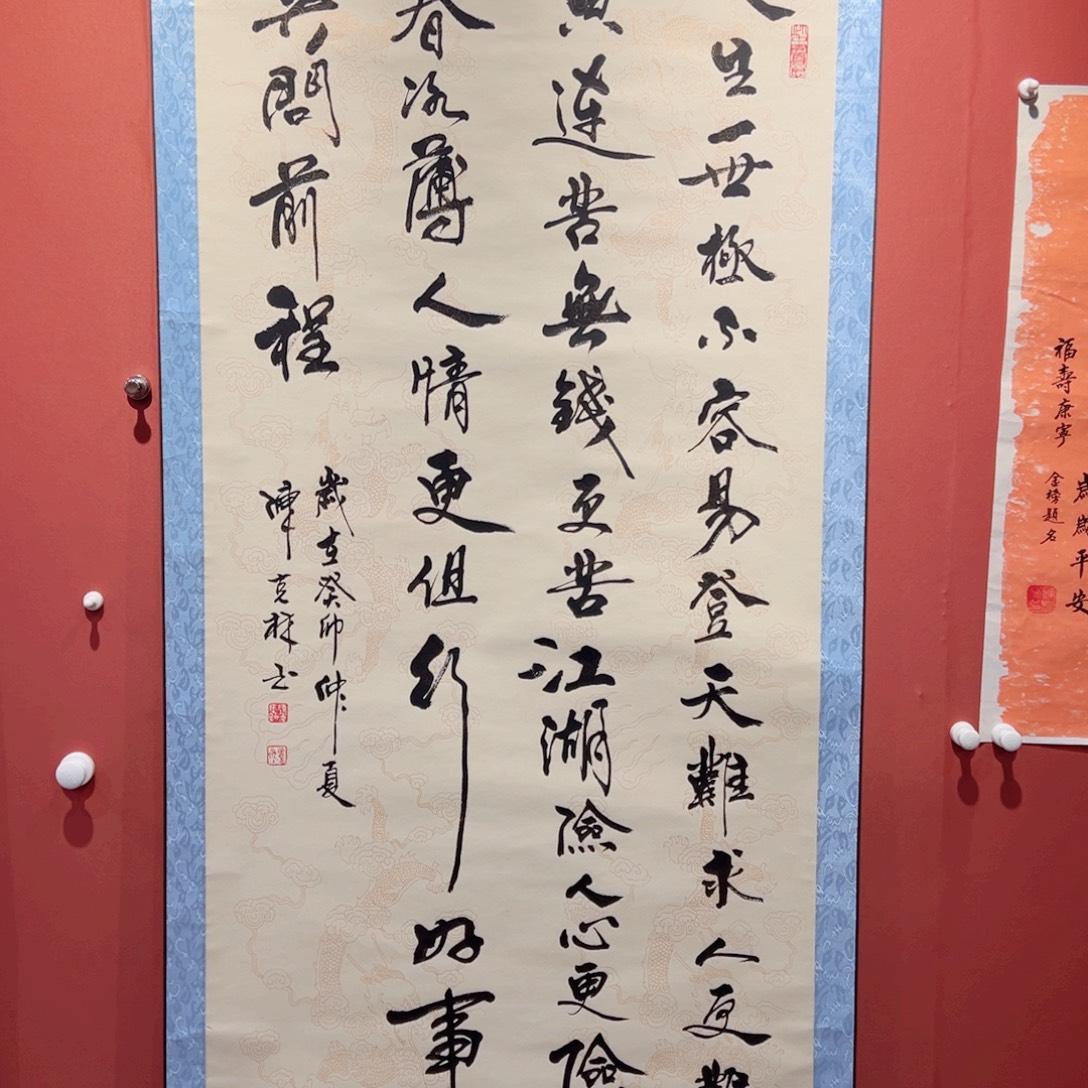 生一世極不容易登天難求人更難
黄連苦無錢更苦江湖險人心更險
春冰薄人情更但行好事
莫問前程
歲在癸卯仲夏
陳克林书
歲歲平安
福壽康寧
金榜題名